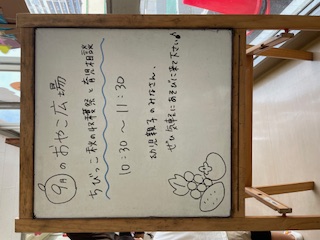 9月のおやこ広場
ちびっこ秋の収穫祭と育児相談
10:30～11:30
幼児親子のみなさん、
ぜひ気軽にあそびに来て下さい♪